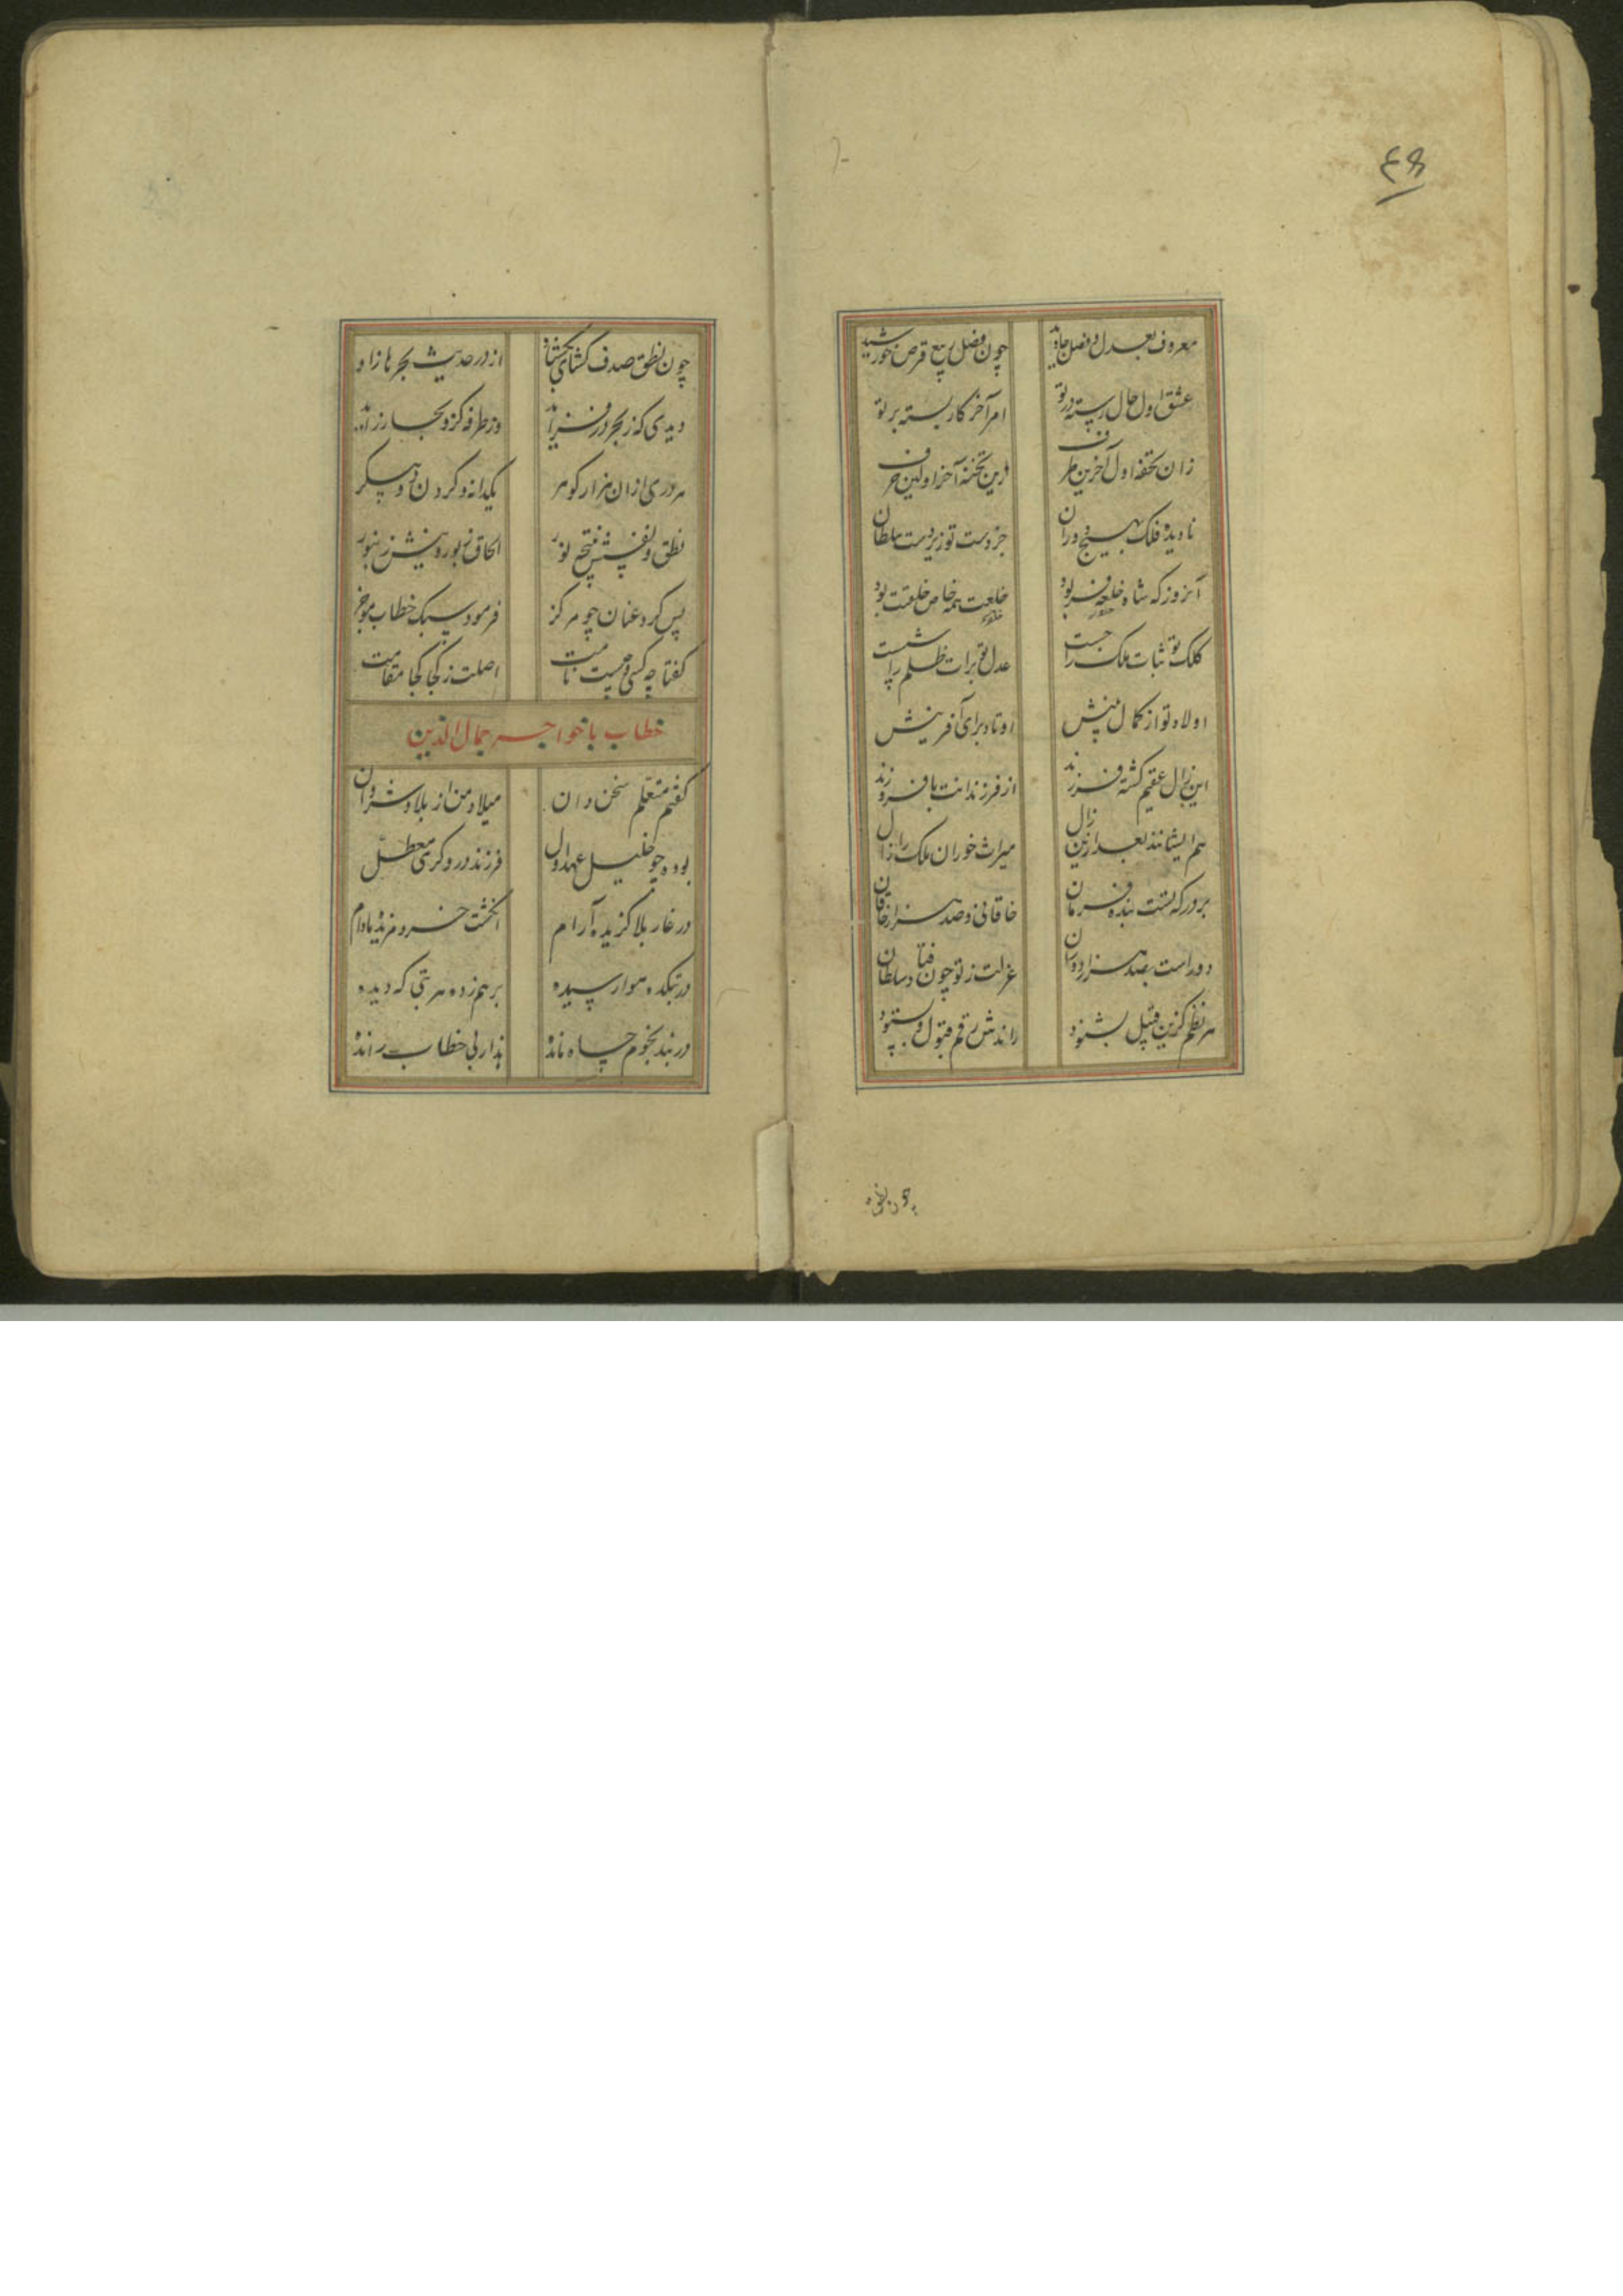 ۴۹
معروف بعدل و فضل جاوید چون فصل ربیع قرص خورشید
عشق اول حال رسته در تو امر آخر کار بسته بر تو
زان تحفه اول آخرین طرف این تخته آخر اولین حرف
نادیده فلک بهیچ دوران جز دست تو زیردست سلطان
آنروز که شاه خلعه فرمود خلعت همه خاص خلعتت بود
کلک تو ثبات ملک را جست عدل تو برات ظلم را شست
اولاد تو از کمال بینش اوتاد برای آفرینش
این زال عقیم گشته فرزند از فرزندانت با فر و زند
هم ایشانند بعد ازین زال میراث خوران ملک را زال
بر درگه تست بنده فرمان خاقانی و صد هزار خاقان
دور است بصد هزار دوران عزلت ز تو چون فنا ز سلطان
هر نظم کزین قبل بشنود راندش رقم قبول و بستود
چون نطق صدف گشای بگشاد از در حدیث بحرها زاد
دیدی که ز بحر در فزاید وز طرفه کزو بحار زاید
هر دری ازان هزار گوهر یکدانه و گردن دو پیکر
پس کرد عنان چو مرکز فرمود سبک خطاب موجز
گفتا چه کسی و چیست نامت اصلت ز کجا کجا مقامت
خطاب با خواجه جمال الدین
گفتم متعلم سخن دان میلاد من از بلاد شروان
بوده چو خلیل عهد اول فرزند دروگری معطل
در غار بلا گزیده آرام انگشت خرد مزیده مادام
در بتکده هوا رسیده برهم زده هر بتی که دیده
در بند نجوم چاه مانده هذا ربی خطاب رانده